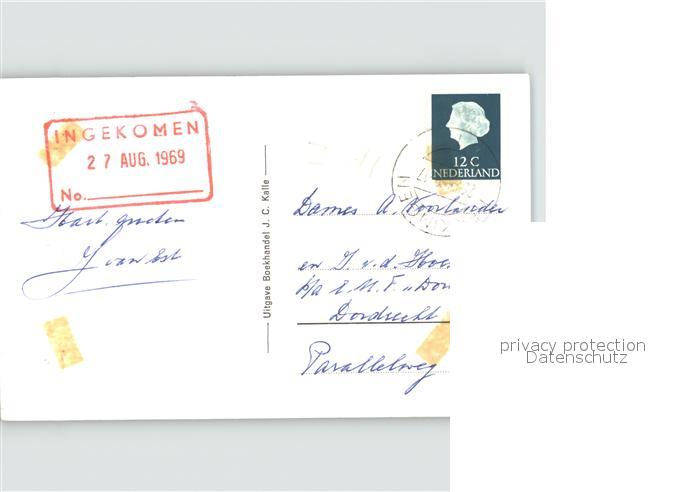 INGEKOMEN
27 AUG. 1969
No.
Hart. groeten
J van Est
Uitgave Boekhandel J. C. Kalle
12 C
NEDERLAND
Dames A.
en J. v. d.
Dordrecht
Parallelweg
privacy protection
Datenschutz